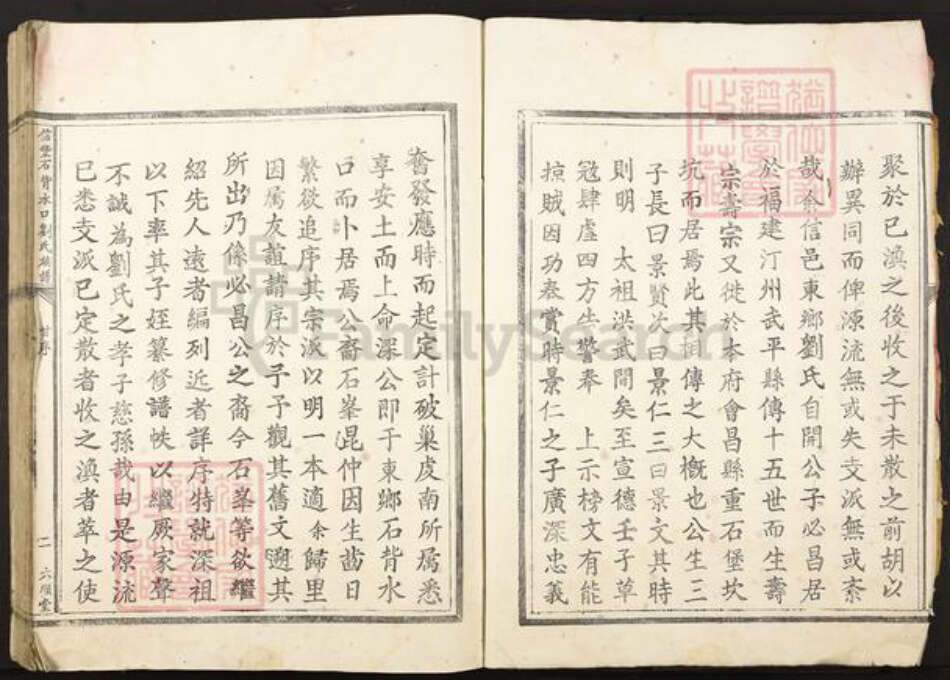 聚於已渙之後收之于未散之前胡以
辦異同而俾源流無或失支派無或紊
哉余信邑東鄉劉氏自開公子必昌居
於福建汀州武平縣傳十五世而生壽
宗壽宗又徙於本府會昌縣重石堡坎
坑而居焉此其相傳之大槪也公生三
子長曰景賢次曰景仁三曰景文其時
則明 太祖洪武間矣至宣德壬子草
冦肆虐四方告警奉 上示榜文有能
掠賊因功奏賞時景仁之子廣深忠義
奮發應時而起定計破巢虔南所属悉
享安土而上命深公即于東鄉石背水
口而卜居焉公裔石峯昆仲因生齒日
繁欲追序其宗派以明一本適余歸里
因属友誼請序於予予觀其舊文遡其
所出乃係必昌公之裔今石峯等欲繼
紹先人遠者編列近者詳序特就深祖
以下率其子姪纂修譜帙以繼厥家聲
不誠為劉氏之孝子慈孫哉由是源流
已悉支派已定散者收之渙者萃之使
石背水口劉氏族譜
二 六順堂
FamilySearch